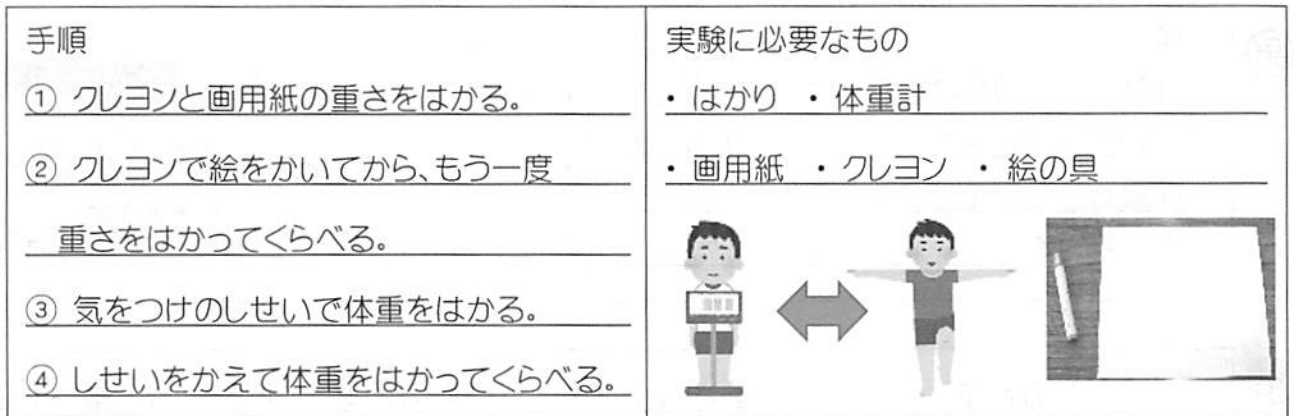 手順
① クレヨンと画用紙の重さをはかる。
② クレヨンで絵をかいてから、もう一度
重さをはかってくらべる。
③ 気をつけのしせいで体重をはかる。
④ しせいをかえて体重をはかってくらべる。
実験に必要なもの
・ はかり ・ 体重計
・ 画用紙 ・ クレヨン ・ 絵の具